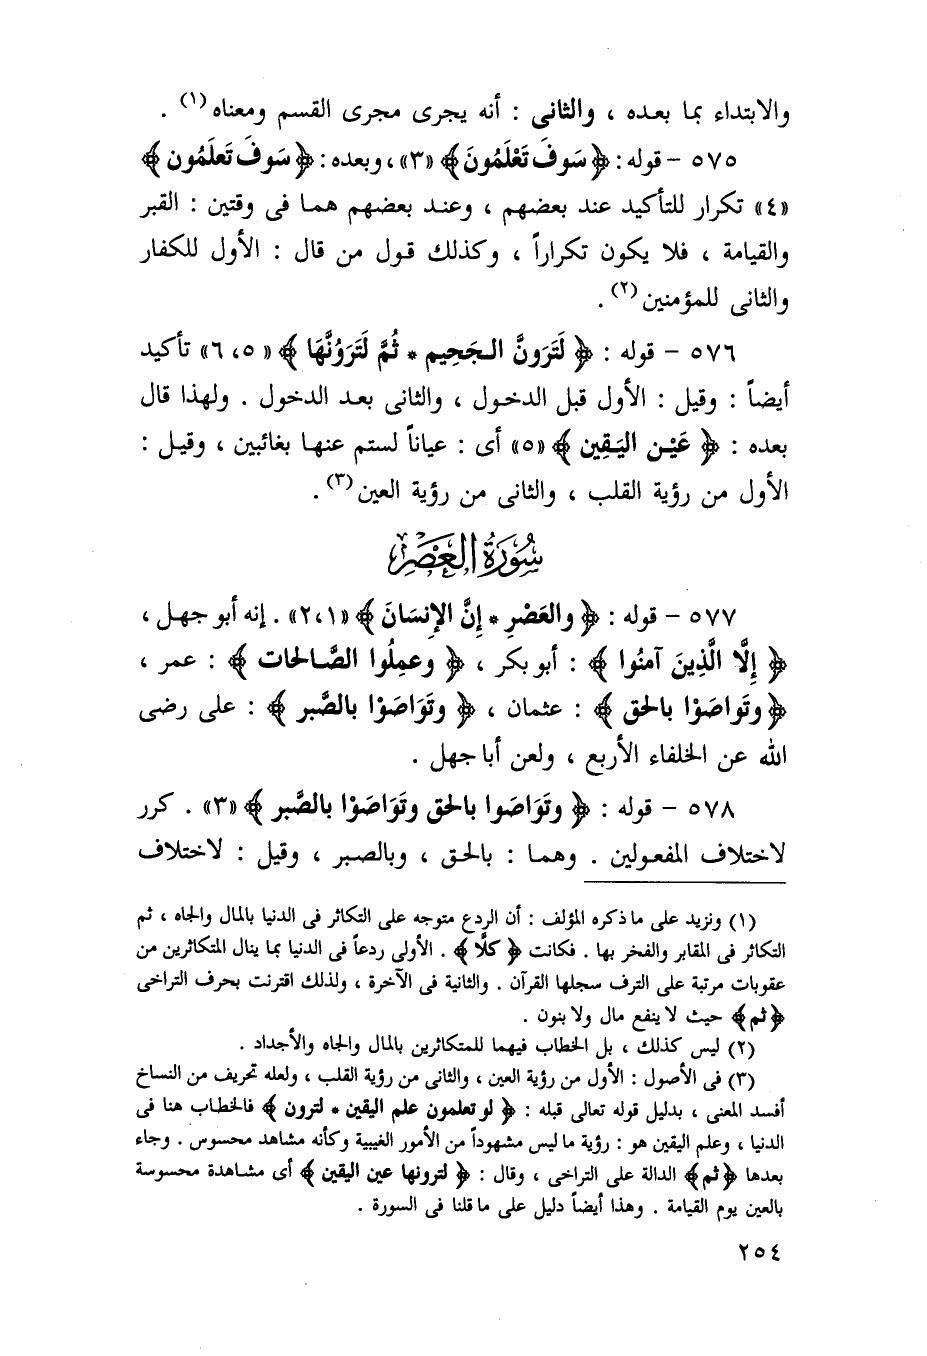 والابتداء بما بعده ، والثانى : أنه يجرى مجرى القسم ومعناه (١) .
٥٧٥ – قوله : ﴿ سَوفَ تَعْلَمُونَ ﴾ «٣» ، وبعده : ﴿ سَوفَ تَعلَمُون ﴾
«٤» تكرار للتأكيد عند بعضهم ، وعند بعضهم هما فى وقتين : القبر
والقيامة ، فلا يكون تكراراً ، وكذلك قول من قال : الأول للكفار
والثانى للمؤمنين (٢) .
٥٧٦ – قوله : ﴿ لَتَرَونَّ الجَحِيم * ثُمَّ لَتَرَوُنَّهَا ﴾ «٥، ٦» تأكيد
أيضاً : وقيل : الأول قبل الدخول ، والثانى بعد الدخول . ولهذا قال
بعده : ﴿ عَيْن اليَقِين ﴾ «٥» أى : عياناً لستم عنها بغائبين ، وقيل :
الأول من رؤية القلب ، والثانى من رؤية العين (٣) .
سُورَةُ العَصْرِ
٥٧٧ – قوله : ﴿ والعَصْرِ * إِنَّ الإِنسَانَ ﴾ «١،٢» . إنه أبو جهل ،
﴿ إِلَّا الَّذِينَ آمَنُوا ﴾ : أبو بكر ، ﴿ وعمِلُوا الصَّالحَات ﴾ : عمر ،
﴿ وتَواصَوْا بالحَق ﴾ : عثمان ، ﴿ وتَوَاصَوْا بالصَّبر ﴾ : على رضى
الله عن الخلفاء الأربع ، ولعن أبا جهل .
٥٧٨ – قوله : ﴿ وتَوَاصَوا بالحَق وتَوَاصَوْا بالصَّبر ﴾ «٣» . كرر
لاختلاف المفعولين . وهما : بالحق ، وبالصبر ، وقيل : لاختلاف
(١) ونزيد على ما ذكره المؤلف : أن الردع متوجه على التكاثر فى الدنيا بالمال والجاه ، ثم
التكاثر فى المقابر والفخر بها . فكانت ﴿ كلَّا ﴾ . الأولى ردعاً فى الدنيا بما ينال المتكاثرين من
عقوبات مرتبة على الترف سجلها القرآن . والثانية فى الآخرة ، ولذلك اقترنت بحرف التراخى
﴿ ثم ﴾ حيث لا ينفع مال ولا بنون .
(٢) ليس كذلك ، بل الخطاب فيهما للمتكاثرين بالمال والجاه والأجداد .
(٣) فى الأصول : الأول من رؤية العين ، والثانى من رؤية القلب ، ولعله تحريف من النساخ
أفسد المعنى ، بدليل قوله تعالى قبله : ﴿ لو تعلمون علم اليقين * لترون ﴾ فالخطاب هنا فى
الدنيا ، وعلم اليقين هو : رؤية ما ليس مشهوداً من الأمور الغيبية وكأنه مشاهد محسوس . وجاء
بعدها ﴿ ثم ﴾ الدالة على التراخى ، وقال : ﴿ لترونها عين اليقين ﴾ أى مشاهدة محسوسة
بالعين يوم القيامة . وهذا أيضاً دليل على ما قلنا فى السورة .
٢٥٤